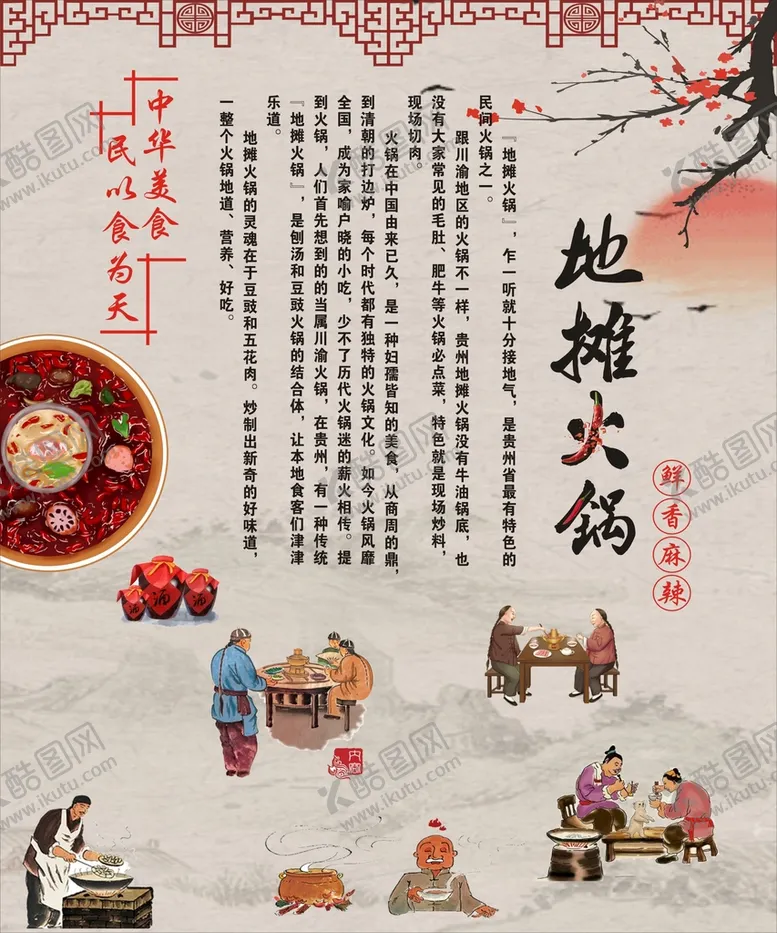 地摊火锅
鲜香麻辣
『地摊火锅』，乍一听就十分接地气，是贵州省最有特色的
民间火锅之一。
跟川渝地区的火锅不一样，贵州地摊火锅没有牛油锅底，也
没有大家常见的毛肚、肥牛等火锅必点菜，特色就是现场炒料，
现场切肉。
火锅在中国由来已久，是一种妇孺皆知的美食，从商周的鼎，
到清朝的打边炉，每个时代都有独特的火锅文化。如今火锅风靡
全国，成为家喻户晓的小吃，少不了历代火锅迷的薪火相传。提
到火锅，人们首先想到的的当属川渝火锅，在贵州，有一种传统
『地摊火锅』，是刨汤和豆豉火锅的结合体，让本地食客们津津
乐道。
地摊火锅的灵魂在于豆豉和五花肉。炒制出新奇的好味道，
一整个火锅地道、营养、好吃。
中华美食
民以食为天
酒
酒
酒
酷图网
www.ikutu.com